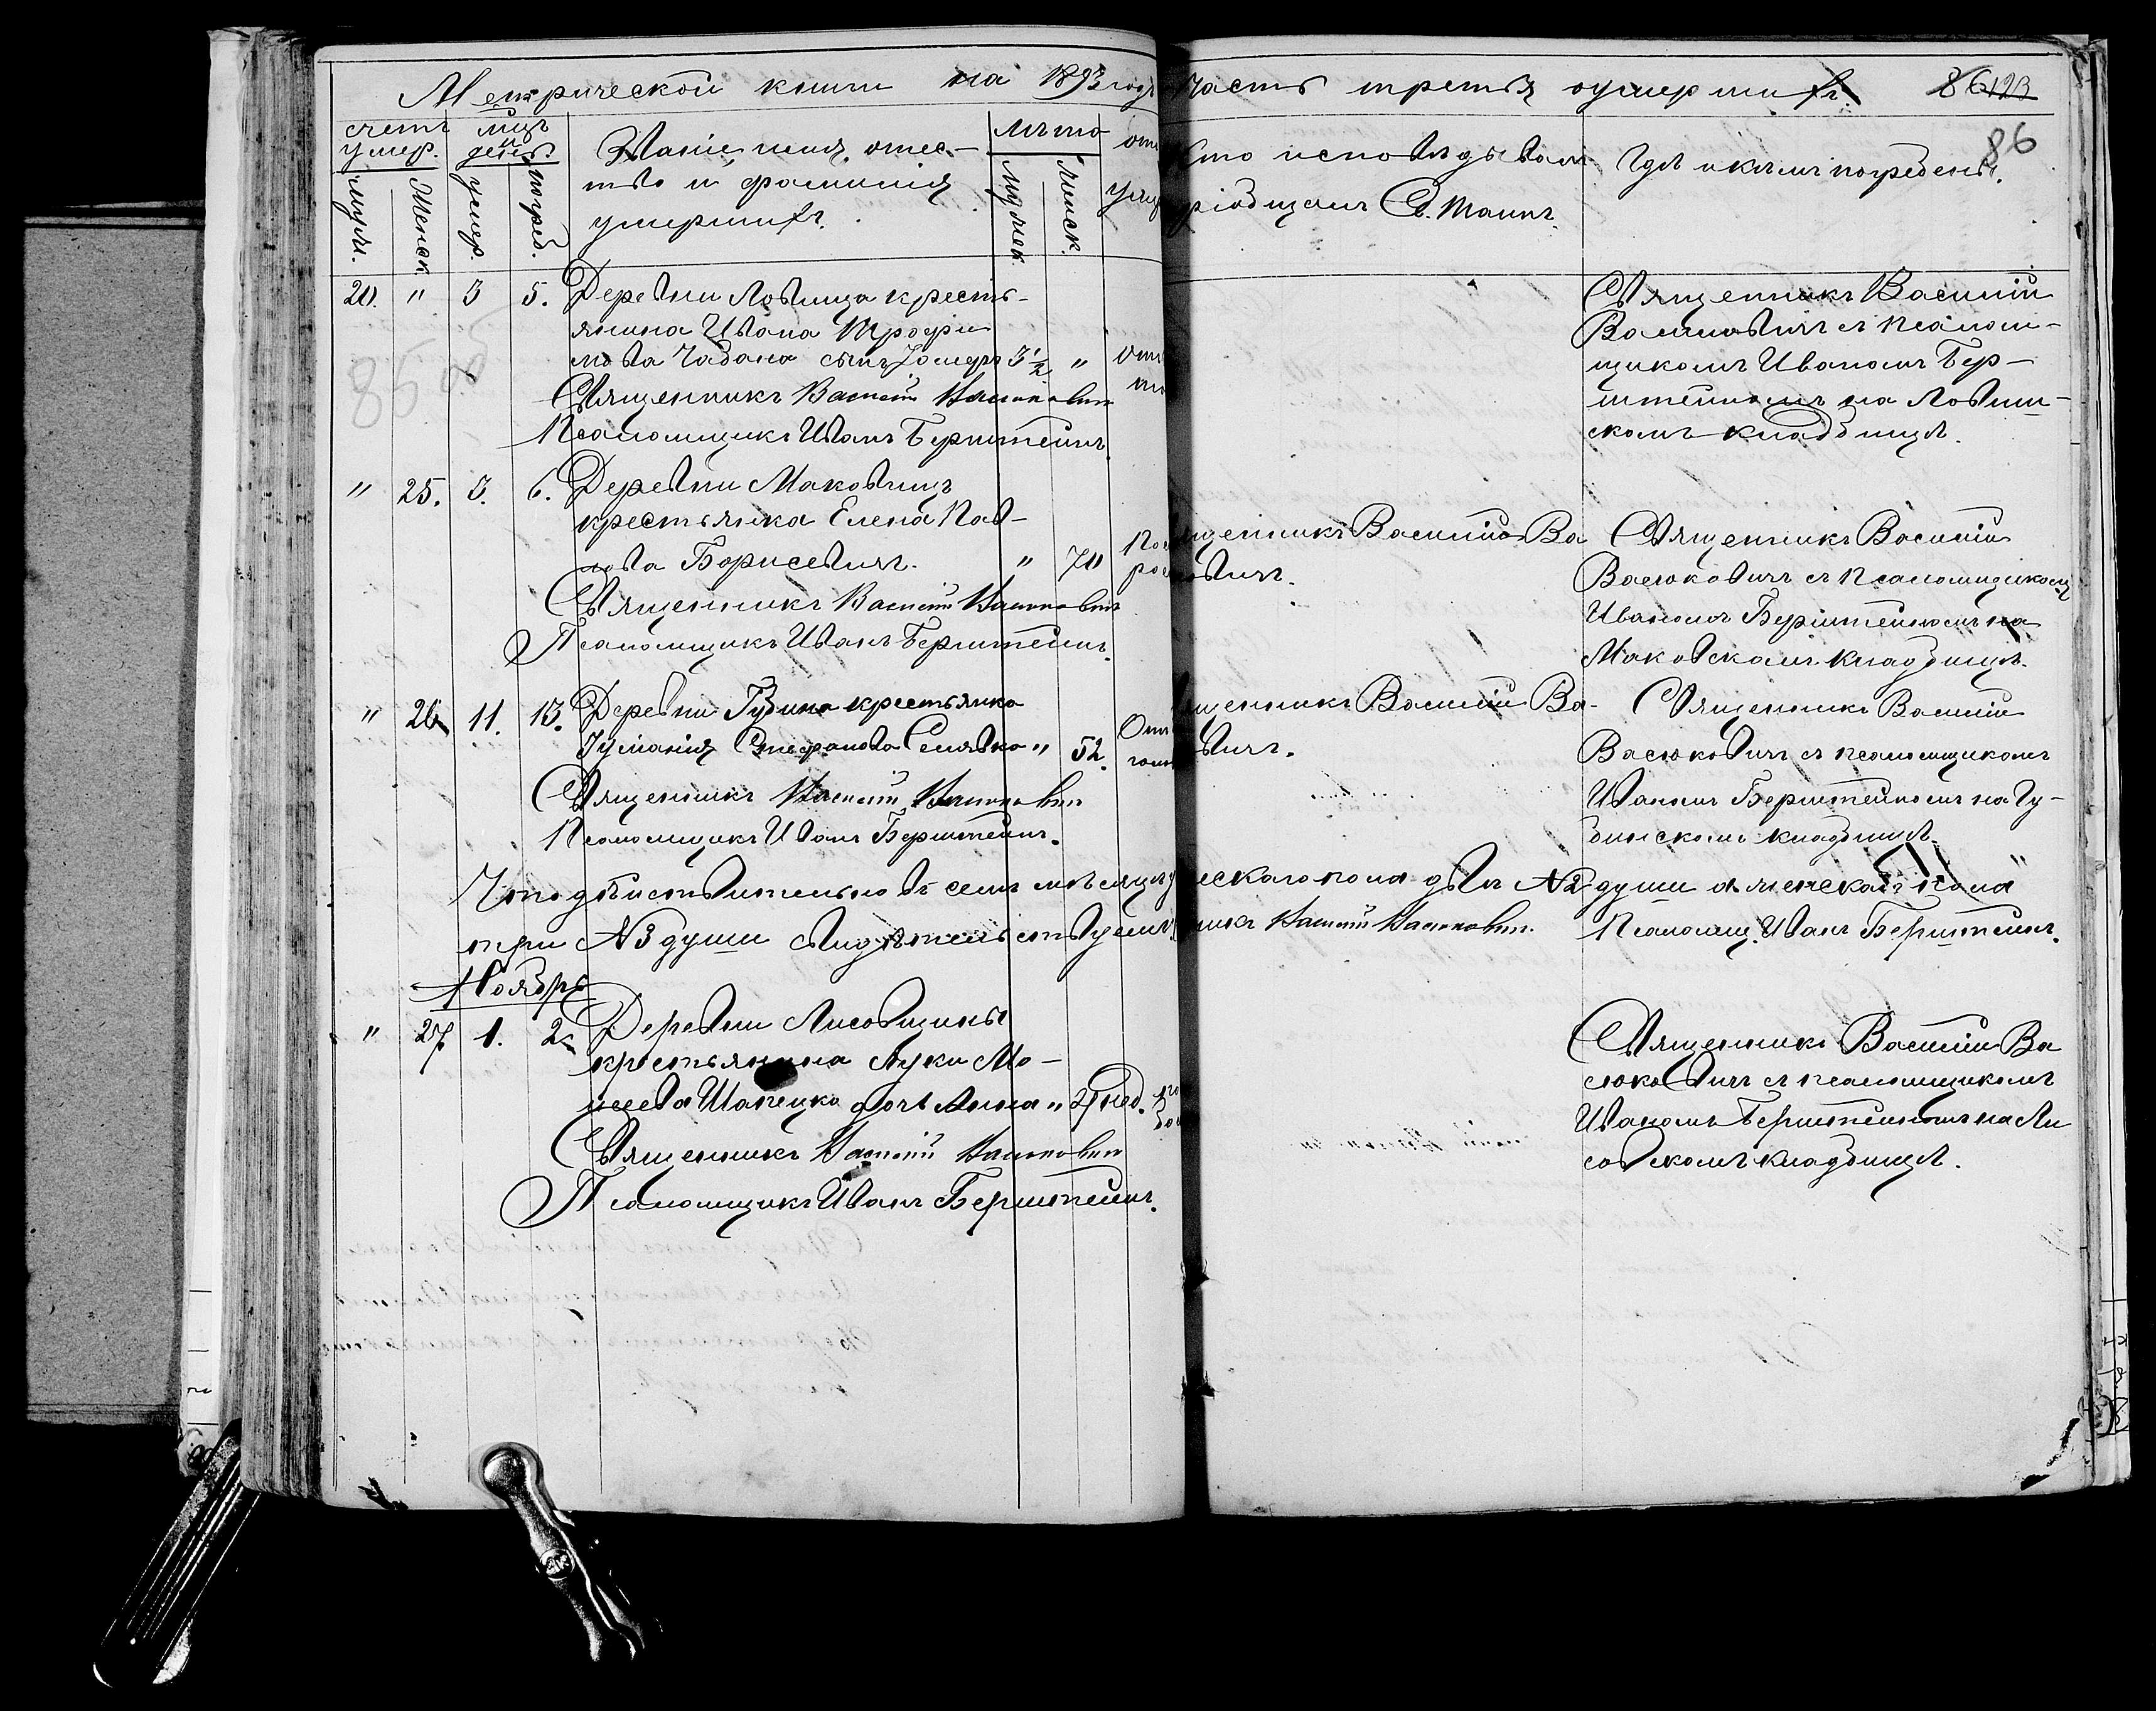 Метрической книги на 1893 годъ часть третья о умершихъ. 86 123
86
счетъ умер.
мцъ и день.
Званіе, имя, отче-
ство и фамилія
умершихъ.
лѣто
мужеск.
женск.
умер.
погреб.
мужеск.
женск.
исповѣдывалъ
пріобщалъ Св. Таинъ.
Гдѣ и кѣмъ погребены.
20. " 3 5. Деревни Ловища кресть-
янина Ивана Трофи-
мова Чабана сынъ 3½ "
Священникъ Василій Васюковичъ
Псаломщикъ Иванъ Берштейнъ.
Священникъ Василій
Васюковичъ съ псалом-
щикомъ Иваномъ Бер-
штейномъ на Ловищ-
скомъ кладбищѣ.
" 25. 3. 6. Деревни Маковищъ
крестьянка Елена Пав-
лова Борисевичъ. " 70
Священникъ Василій Васюковичъ
Псаломщикъ Иванъ Берштейнъ.
щенникъ Василій Ва
ковичъ.
Священникъ Василій
Васюковичъ съ Псаломщикомъ
Иваномъ Берштейномъ на
Маковскомъ кладбищѣ.
" 26 11. 13. Деревни Губина крестьянка
Іуліанія Стефанова " 52.
Священникъ Василій Васюковичъ
Псаломщикъ Иванъ Берштейнъ.
щенникъ Василій Ва-
вичъ.
Священникъ Василій
Васюковичъ съ псаломщикомъ
Иваномъ Берштейномъ на Гу-
бинскомъ кладбищѣ.
Что дѣйствительно въ семъ мѣсяцѣ ческаго пола двѣ №2 души а женскаго пола
три №3 души свидѣтельствуемъ Василій Васюковичъ. Псаломщ. Иванъ Берштейнъ.
Ноябрь
" 27. 1. 2. Деревни Лисовщины
крестьянина Луки Мо-
исеева дочь Анна " 2 нед.
Священникъ Василій Васюковичъ
Псаломщикъ Иванъ Берштейнъ.
Священникъ Василій Ва
сюковичъ съ псаломщикомъ
Иваномъ Берштейномъ на Ли
совскомъ кладбищѣ.